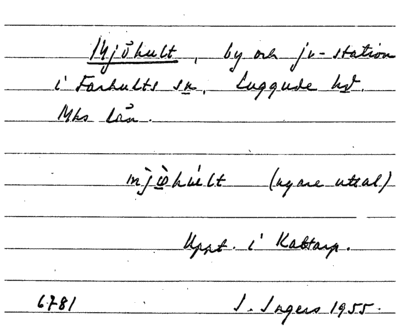 Mjöhult, by och jv-station
i Farhults sn, Luggude hd.
Mhs län.
mjö̀húlt (nyare uttal)
Uppt. i Kattarp.
6781 I. Ingers 1955.